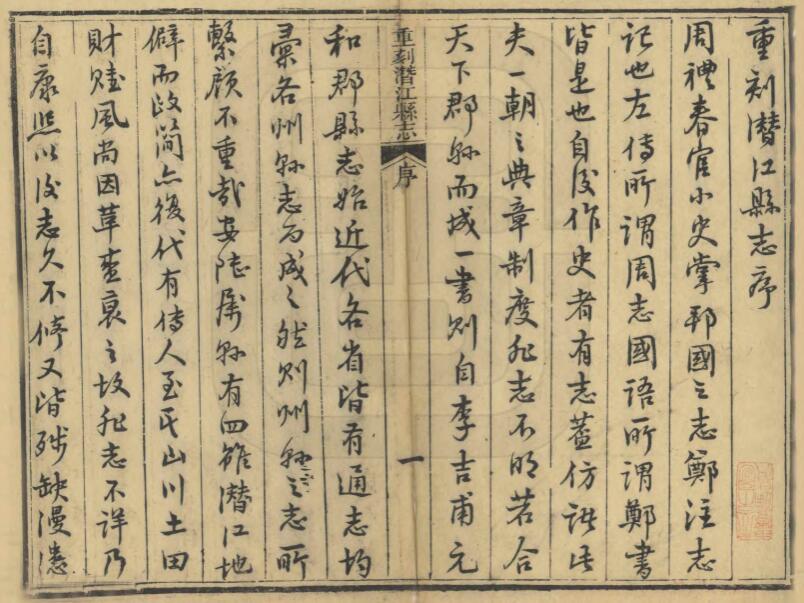 重刻潛江縣志序
周禮春官小史掌邦國之志鄭注志
記也左傳所謂周志國語所謂鄭書
皆是也自後作史者有志蓋仿諸此
夫一朝之典章制度非志不明若合
天下郡縣而成一書則自李吉甫元
重刻潛江縣志 序 一
和郡縣志始近代各省皆有通志均
彙各州縣志而成之然則州縣之志所
繫顧不重哉安陸屬縣有四雖潛江地
僻而政簡然後代有傳人至民山川土田
財賦風尚因革盛衰之故非志不詳乃
自康熙以後志久不修又皆殘缺漫漶